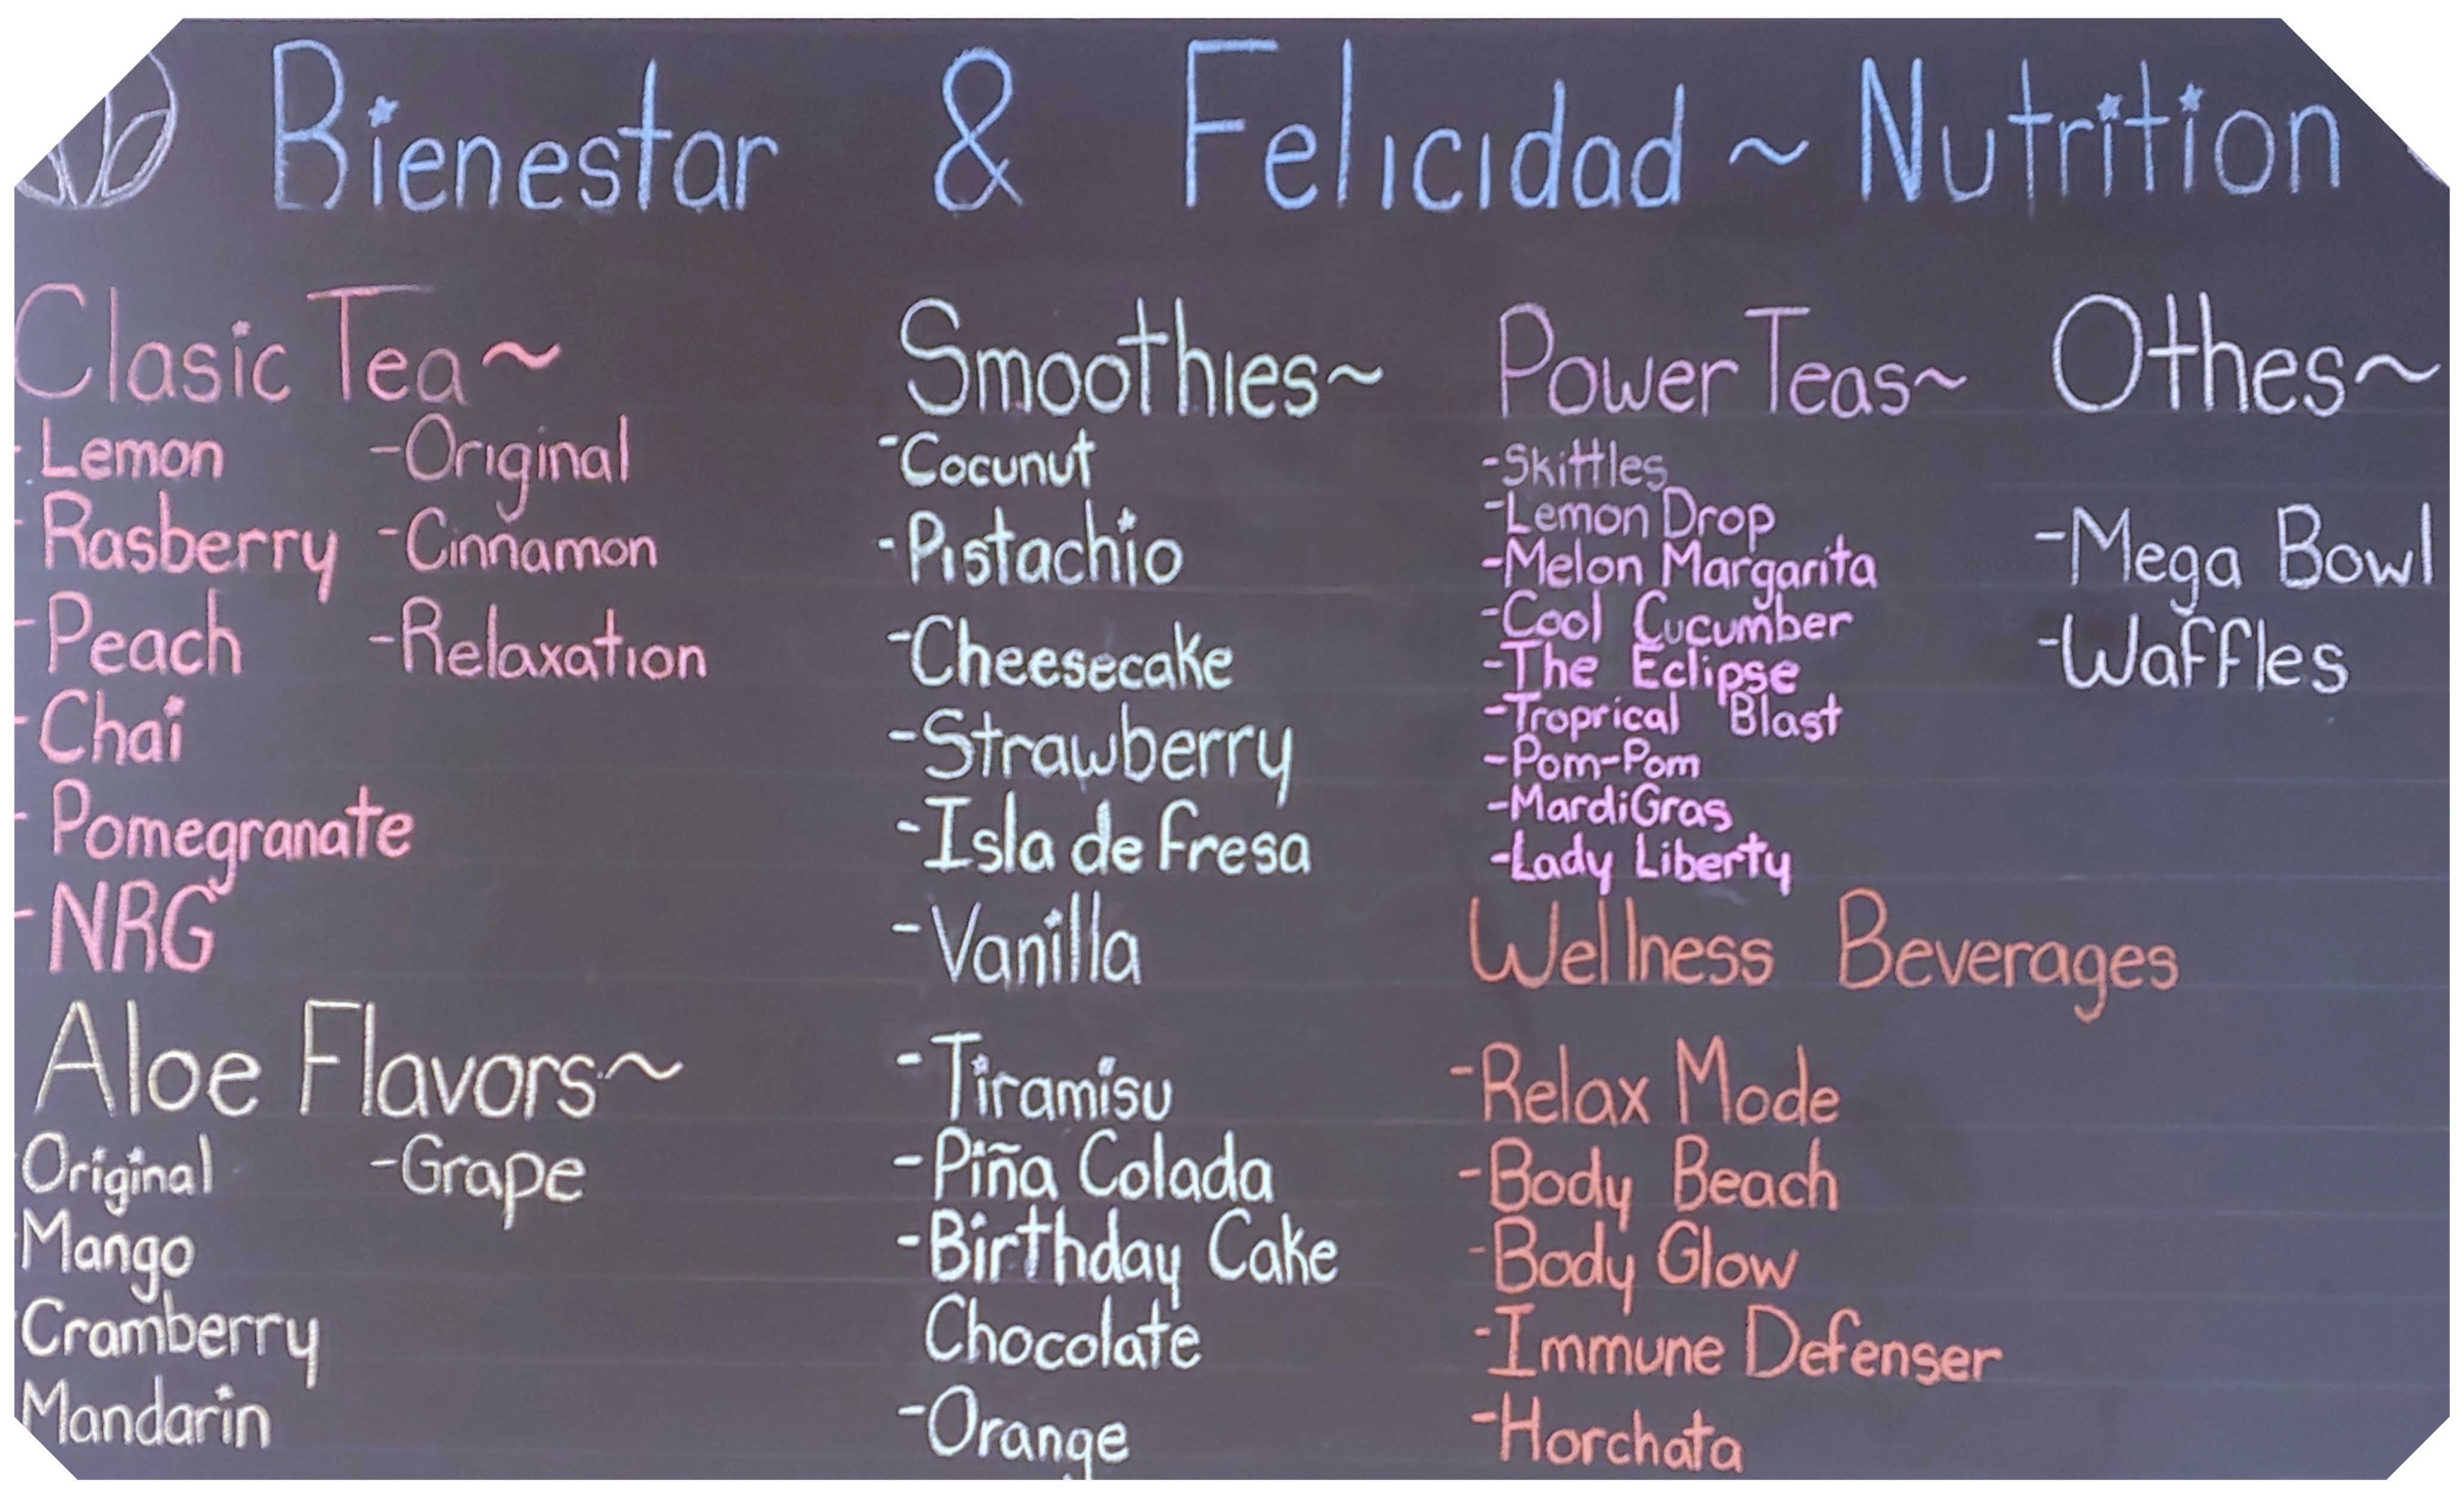 Bienestar & Felicidad ~ Nutrition
Clasic Tea~
-Lemon
-Rasberry
-Peach
-Chai
-Pomegranate
-NRG
-Original
-Cinnamon
-Relaxation
Aloe Flavors~
Original
Mango
Cramberry
Mandarin
-Grape
Smoothies~
-Cocunut
-Pistachio
-Cheesecake
-Strawberry
-Isla de fresa
-Vanilla
-Tiramisu
-Piña Colada
-Birthday Cake
Chocolate
-Orange
Power Teas~
-Skittles
-Lemon Drop
-Melon Margarita
-Cool Cucumber
-The Eclipse
-Troprical Blast
-Pom-Pom
-MardiGras
-Lady Liberty
Wellness Beverages
-Relax Mode
-Body Beach
-Body Glow
-Immune Defenser
-Horchata
Othes~
-Mega Bowl
-Waffles